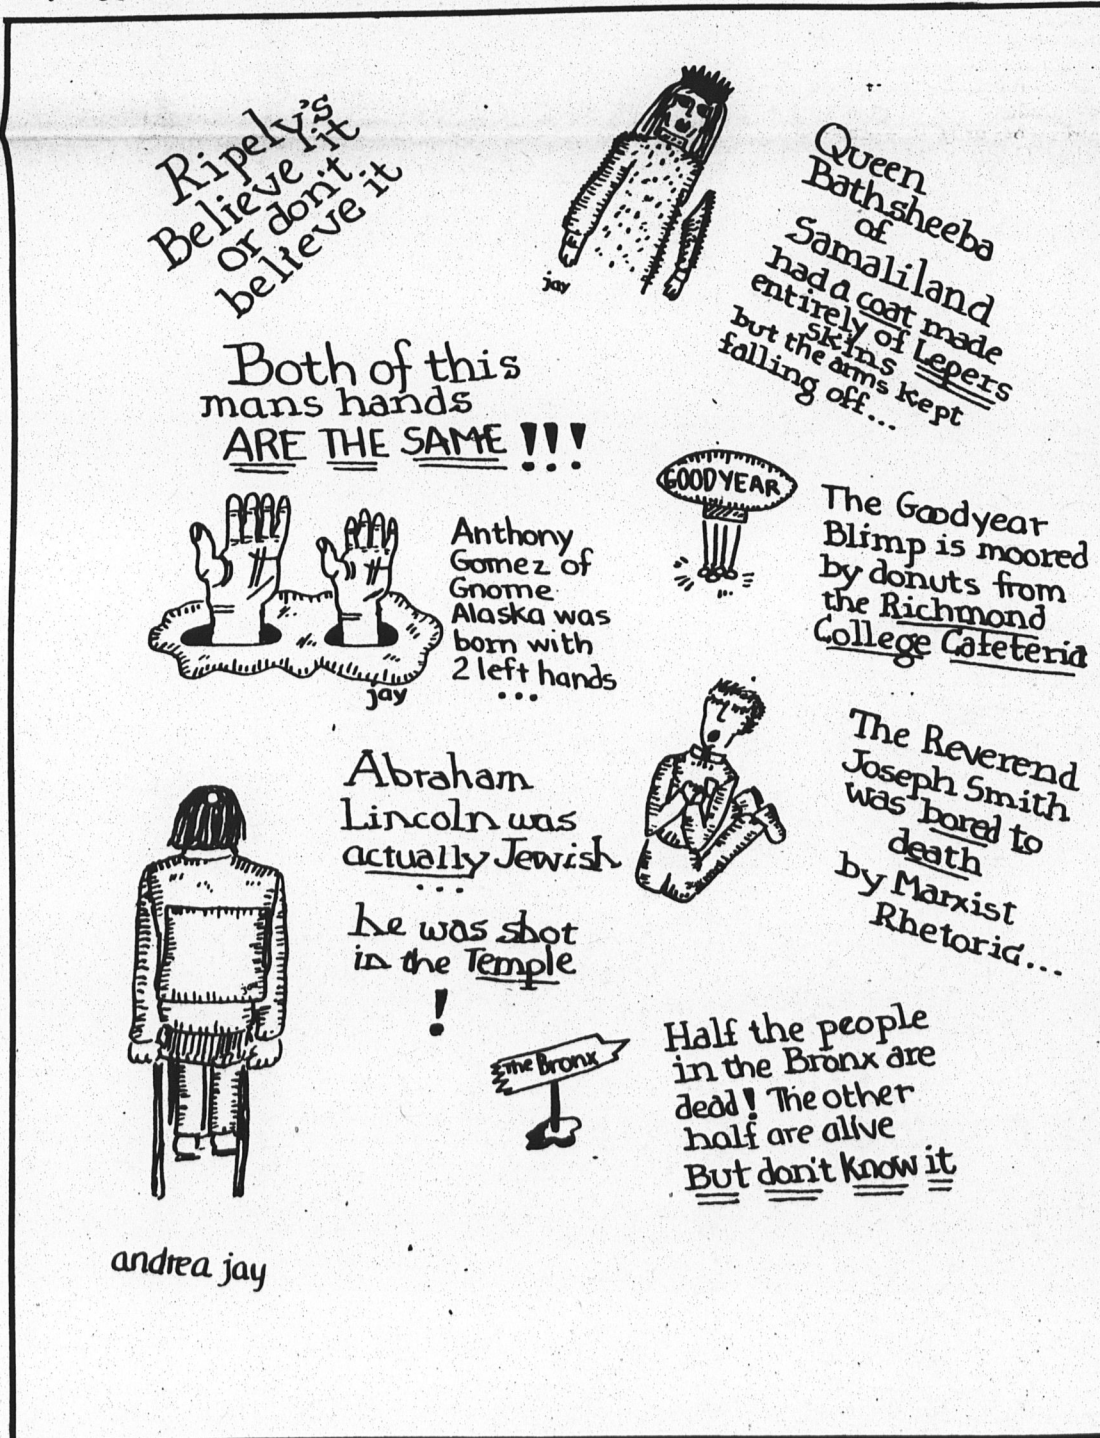 Ripely's
Believe it
or don't
believe it
jay
Queen
Bathsheeba
of
Samaliland
had a coat made
entirely of Lepers
skins
but the arms kept
falling off...
Both of this
mans hands
ARE THE SAME !!!
Anthony
Gomez of
Gnome
Alaska was
born with
2 left hands
...
jay
GOODYEAR
The Goodyear
Blimp is moored
by donuts from
the Richmond
College Cafeteria
Abraham
Lincoln was
actually Jewish
...
he was shot
in the Temple
!
The Reverend
Joseph Smith
was bored to
death
by Marxist
Rhetoric...
The Bronx
Half the people
in the Bronx are
dead! The other
half are alive
But don't know it
andrea jay